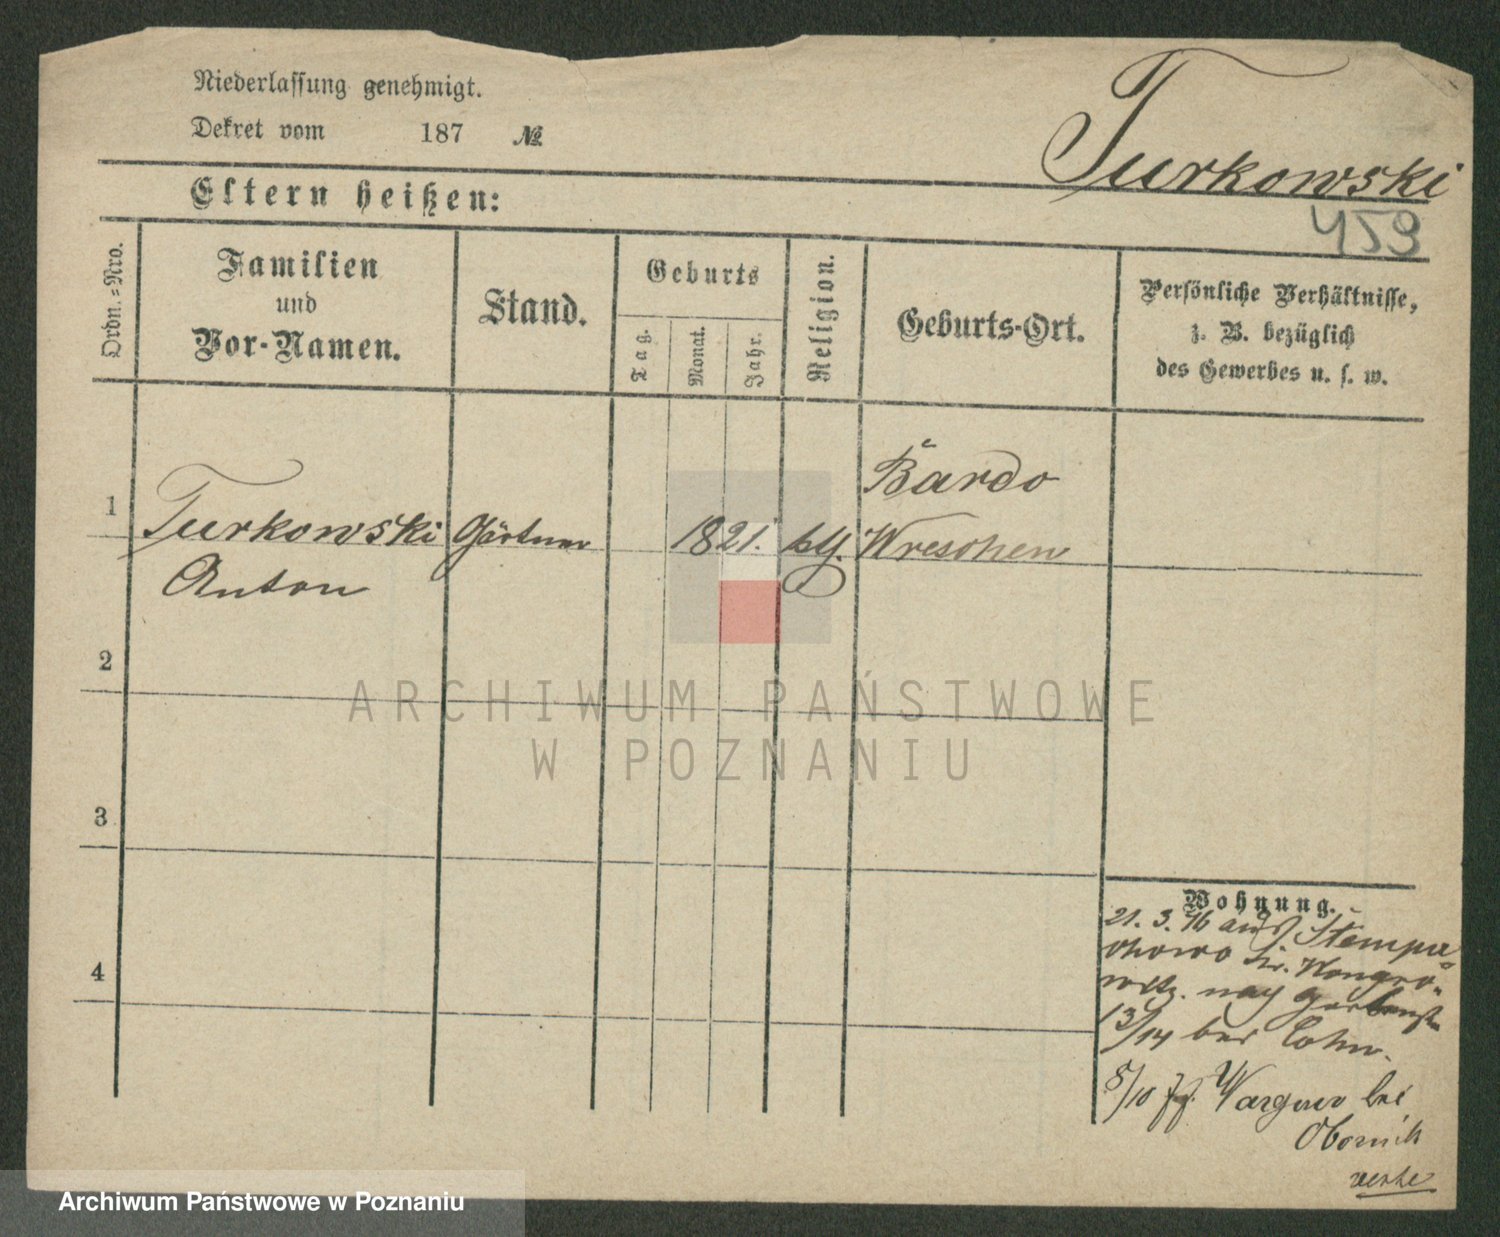 Niederlassung genehmigt.
Dekret vom 187 №
Turkowski
Eltern heißen:
459
Ordn.-Nro.
Familien
und
Vor-Namen.
Stand.
Geburts
Tag.
Monat.
Jahr.
Religion.
Geburts-Ort.
Persönliche Verhältnisse,
z. B. bezüglich
des Gewerbes u. s. w.
1
Turkowski
Anton
Gärtner
1821.
kth.
Bardo
Wreschen
2
ARCHIWUM PAŃSTWOWE
W POZNANIU
3
4
Wohnung.
21. 3. 76 aus Stempu-
chowo Kr. Wongro-
witz. nach Gerberstr
13/14 bei Cohn.
5/10 Wargowo bei
Obornik
Archiwum Państwowe w Poznaniu